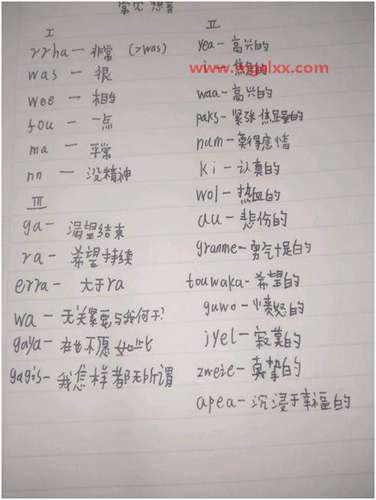 常见想音
I
rrha — 非常 (>was)
was — 很
wee — 相当
fou — 一点
ma — 平常
nn — 没精神
III
ga — 渴望结束
ra — 希望持续
erra — 大于ra
wa — 无关紧要与我何干?
gaya — 在也不愿如此
gagis — 我怎样都无所谓
II
yea — 高兴的
i — 焦虑的
www.xgqlxx.com
waa — 高兴的
paks — 紧张焦虑的
num — 莫得感情
ki — 认真的
wol — 热血的
au — 悲伤的
granme — 勇气十足的
touwaka — 希望的
guwo — 愤怒的
jyel — 寂寞的
zweie — 真挚的
apea — 沉浸于幸福的